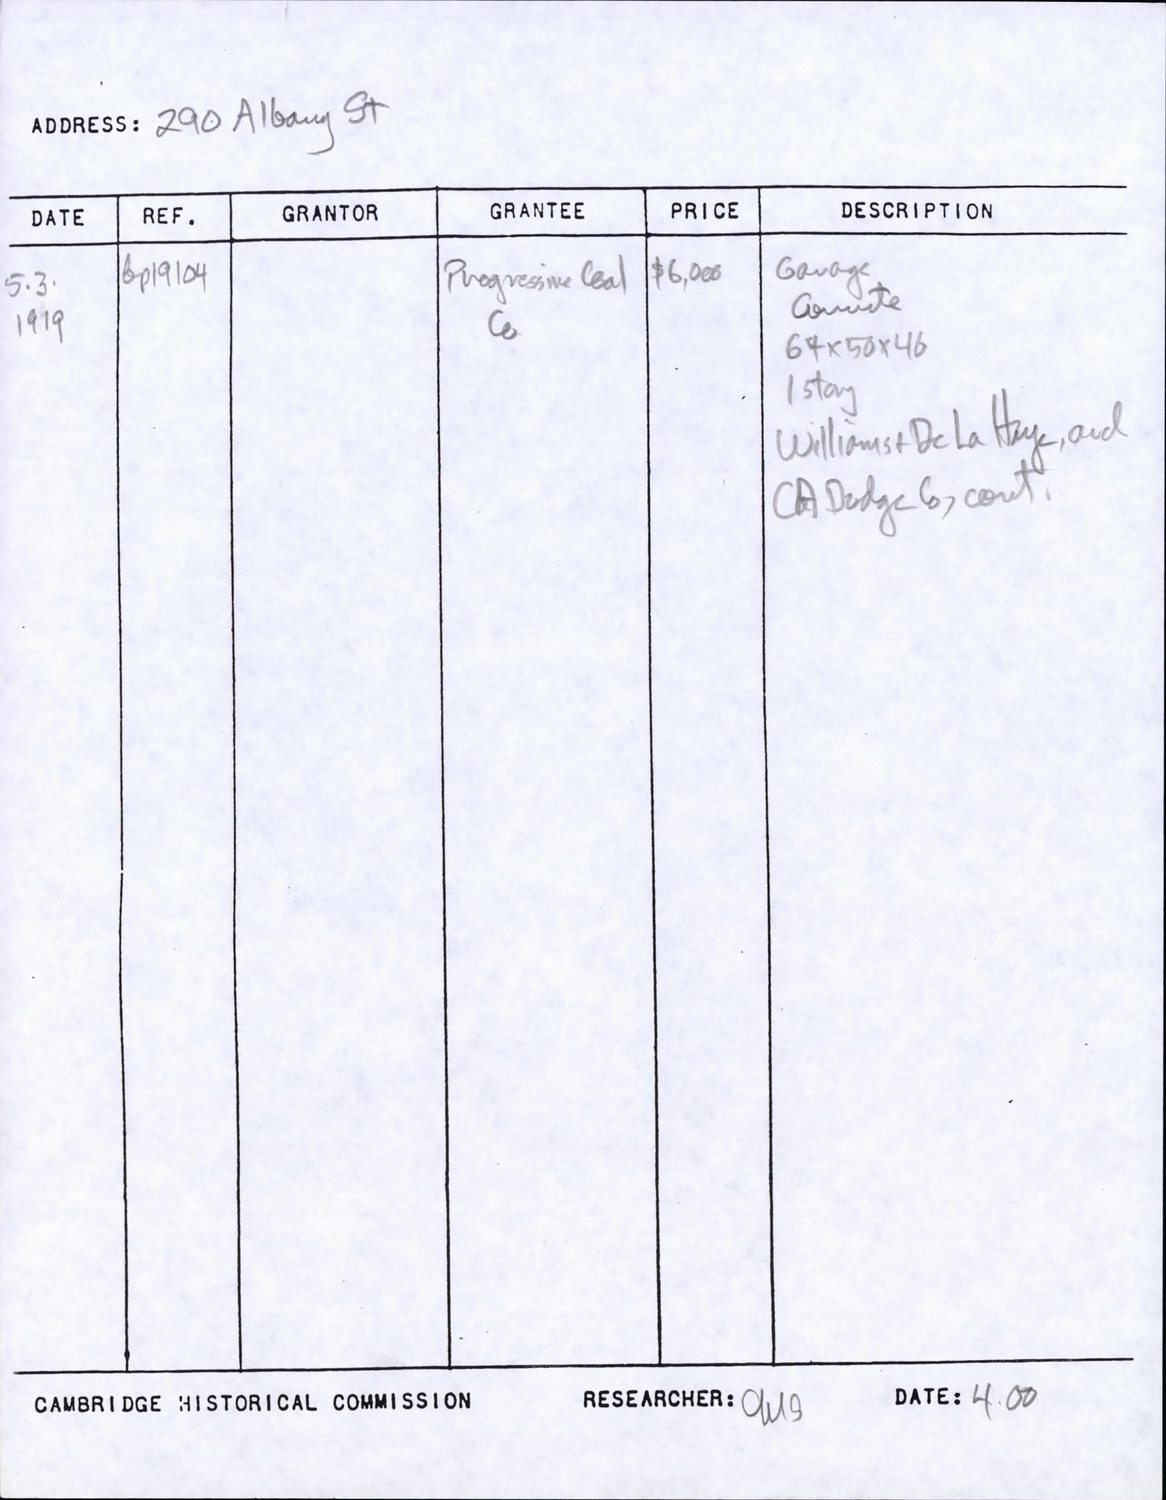 ADDRESS: 290 Albany St
DATE REF. GRANTOR GRANTEE PRICE DESCRIPTION
5.3. bp19104 Progressive Coal $6,000 Garage
1919 Co. Concrete
64x50x46
1 story
Williams + De La Haye, and
CA Dodge Co, cont.
CAMBRIDGE HISTORICAL COMMISSION RESEARCHER: DATE: 4.00